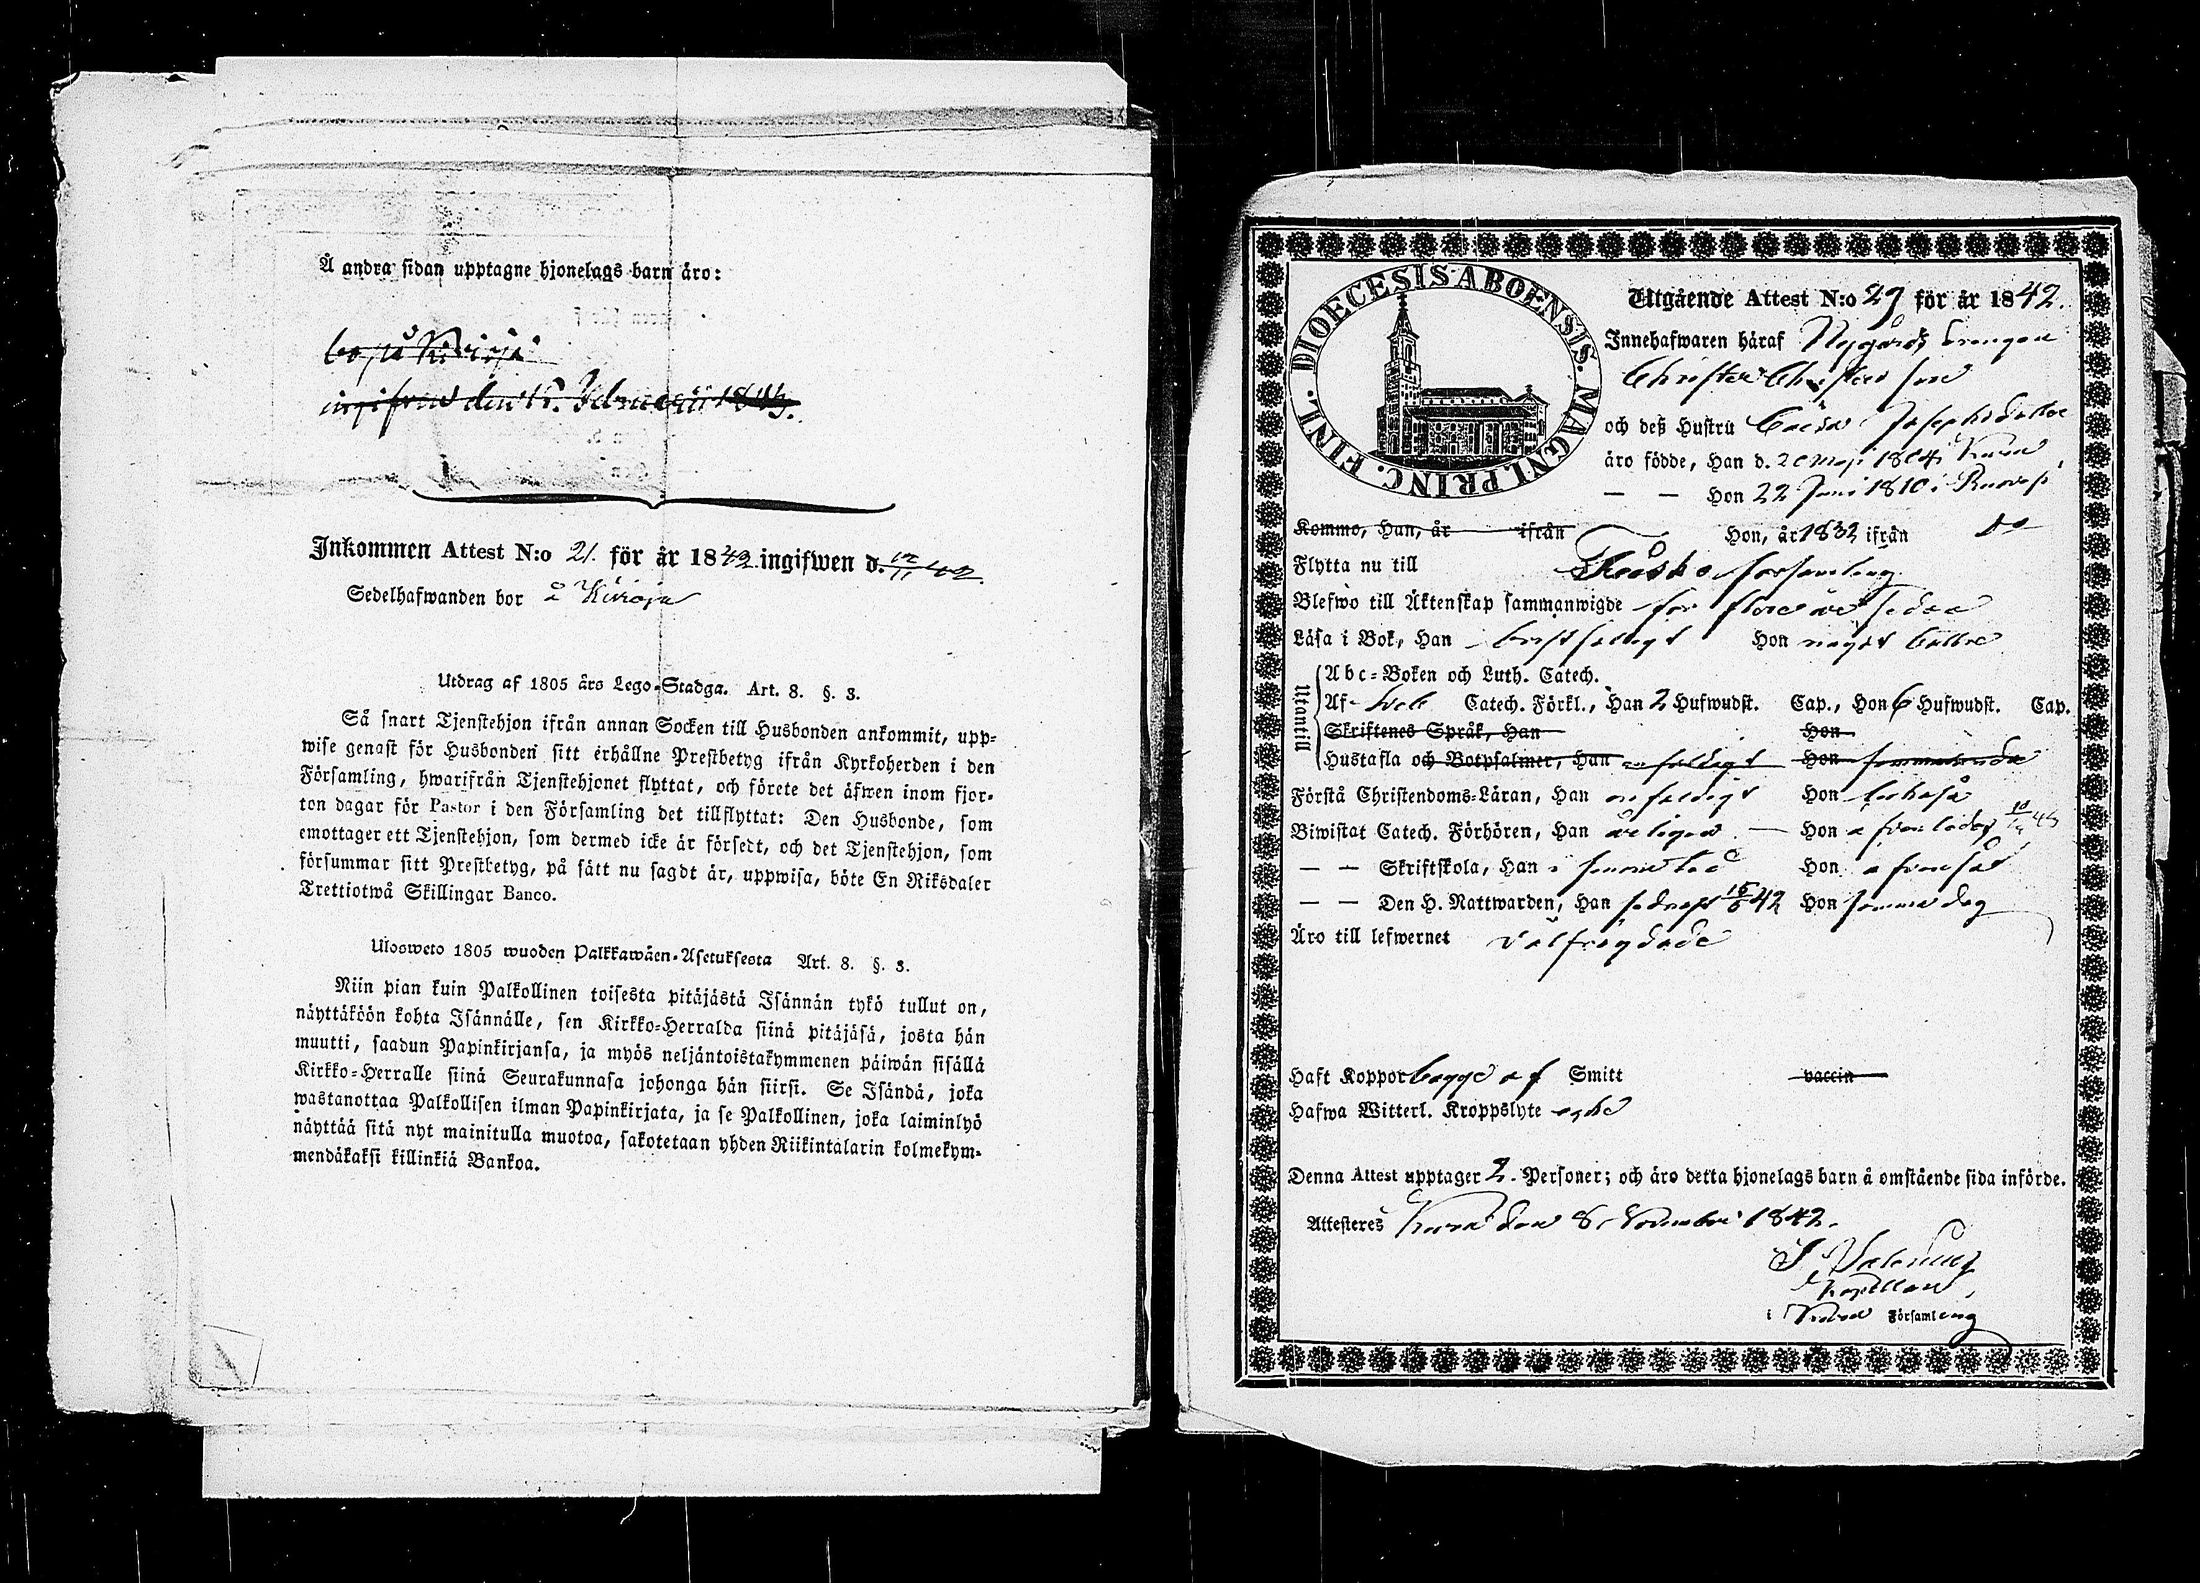 Å andra sidan upptagne hjonelags barn äro:
bo på
ingifven den Februari 1843.
Inkommen Attest N:o 21. för år 1842 ingifwen d. 12/11 42.
Sedelhafwanden bor å
Utdrag af 1805 års Lego-Stadga. Art. 8. §. 3.
Så snart Tjenstehjon ifrån annan Socken till Husbonden ankommit, upp-
wise genast för Husbonden sitt erhållne Prestbetyg ifrån Kyrkoherden i den
Församling, hwarifrån Tjenstehjonet flyttat, och förete det äfwen inom fjor-
ton dagar för Pastor i den Församling det tillflyttat: Den Husbonde, som
emottager ett Tjenstehjon, som dermed icke är försedt, och det Tjenstehjon, som
försummar sitt Prestbetyg, på sätt nu sagdt är, uppwisa, böte En Riksdaler
Trettiotwå Skillingar Banco.
Ulosweto 1805 wuoden Palkkawäen-Asetuksesta Art. 8. §. 3.
Niin pian kuin Palkollinen toisesta pitäjästä Isännän tykö tullut on,
näyttäköön kohta Isännälle, sen Kirkko-Herralda siinä pitäjäsä, josta hän
muutti, saadun Papinkirjansa, ja myös neljäntoistakymmenen päiwän sisällä
Kirkko-Herralle siinä Seurakunnasa johonga hän siirsi. Se Isändä, joka
wastanottaa Palkollisen ilman Papinkirjata, ja se Palkollinen, joka laiminlyö
näyttää sitä nyt mainitulla muotoa, sakotetaan yhden Riikintalarin kolmekym-
mendäkaksi killinkiä Bankoa.
DIOECESIS ABOENSIS. MAGNI. PRINC. FINL.
Utgående Attest N:o 29 för år 1842.
Innehafwaren häraf Nygårds drengen
Christer Christers son
och deß Hustru Caisa Josephsdotter
äro födde, Han d. 20 Maji 1804 i
— — Hon 22 Juni 1810 i
Kommo, Han, år ifrån Hon, år 1832 ifrån do
Flytta nu till församling
Blefwo till Äktenskap sammanwigde för flere år sedan
Läsa i Bok, Han bristfälligt Hon något bättre
Utantill
Abc-Boken och Luth. Catech.
Af- Catech. Förkl., Han 2 Hufwudst. Cap., Hon 6 Hufwudst. Cap.
Skriftenes Språk, Han Hon
Hustafla och Botpsalmer, Han enfaldigt Hon
Förstå Christendoms-Läran, Han enfaldigt Hon likaså
Biwistat Catech. Förhören, Han årligen — Hon
— — Skriftskola, Han Hon
— — Den H. Nattwarden, Han sednast 42 Hon samma dag
Äro till lefwernet välfrägdade
Haft Koppor bägge af Smitt vaccin
Hafwa Witterl. Kroppslyte
Denna Attest upptager 2. Personer; och äro detta hjonelags barn å omstående sida införde.
Attesteres den 8 Novembri 1842.
Kapellan
i Församling